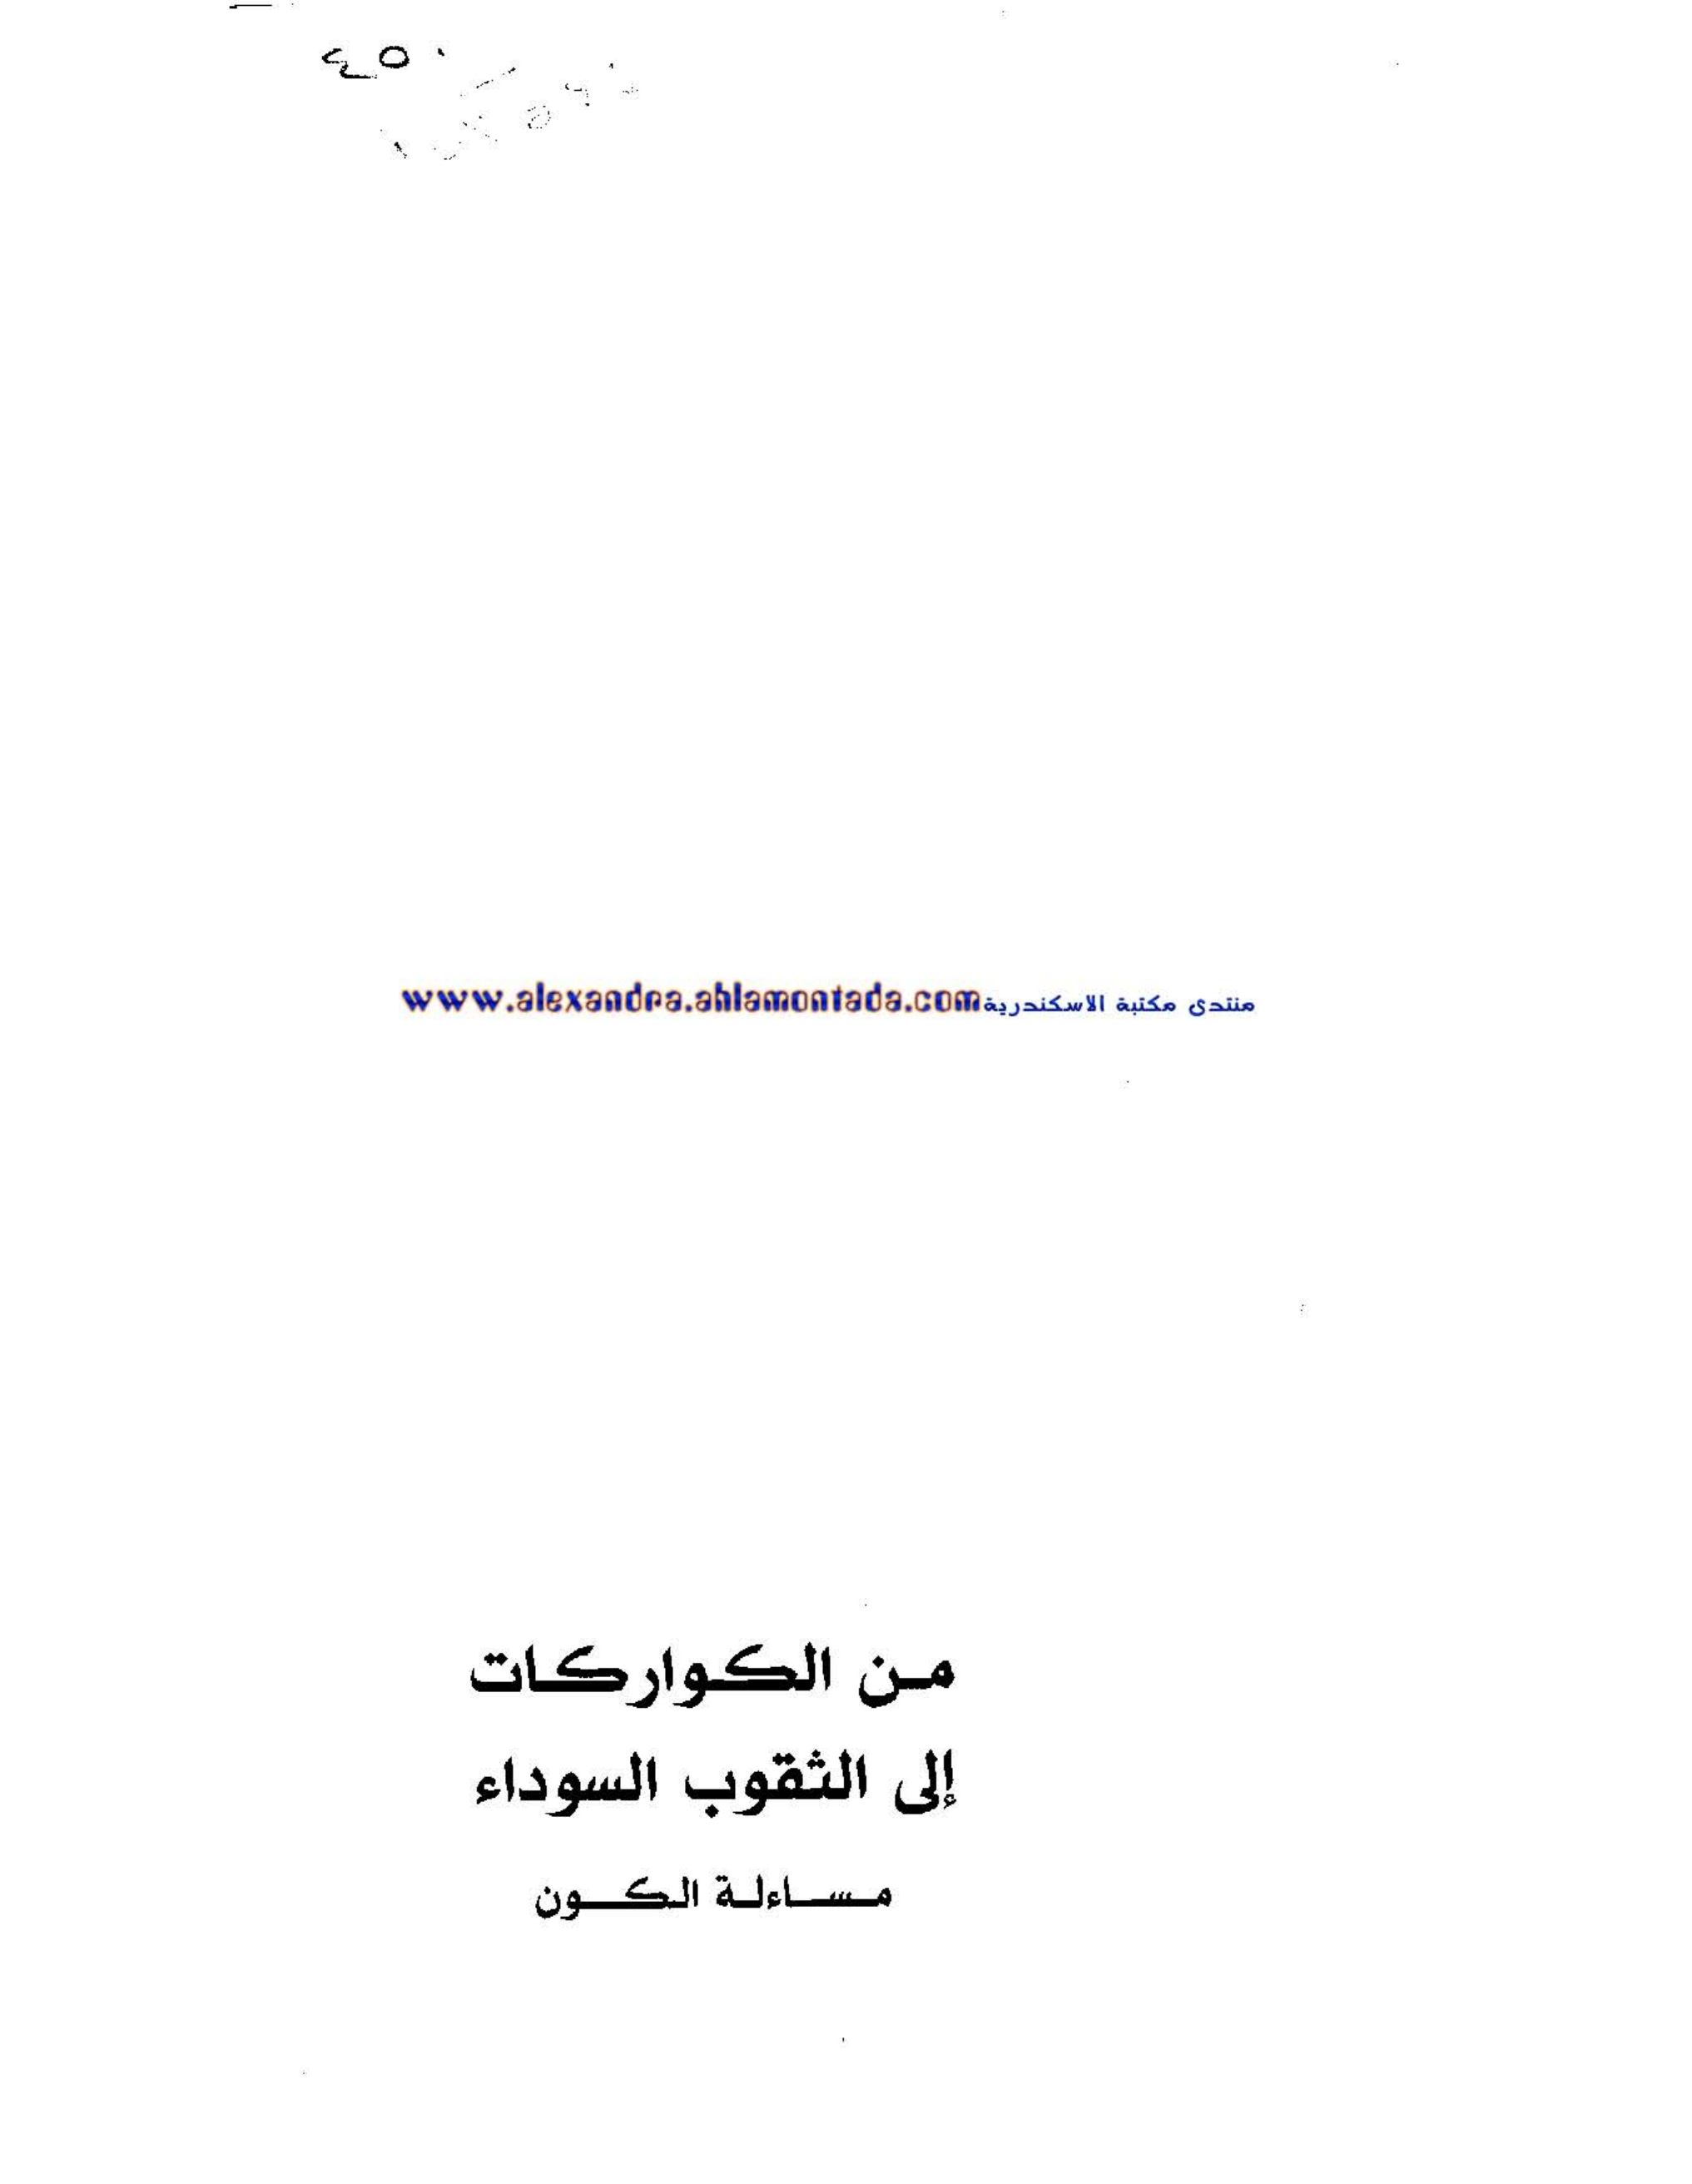 منتدى مكتبة الاسكندرية www.alexandra.ahlamontada.com
من الكواركات
إلى الثقوب السوداء
مساءلة الكون